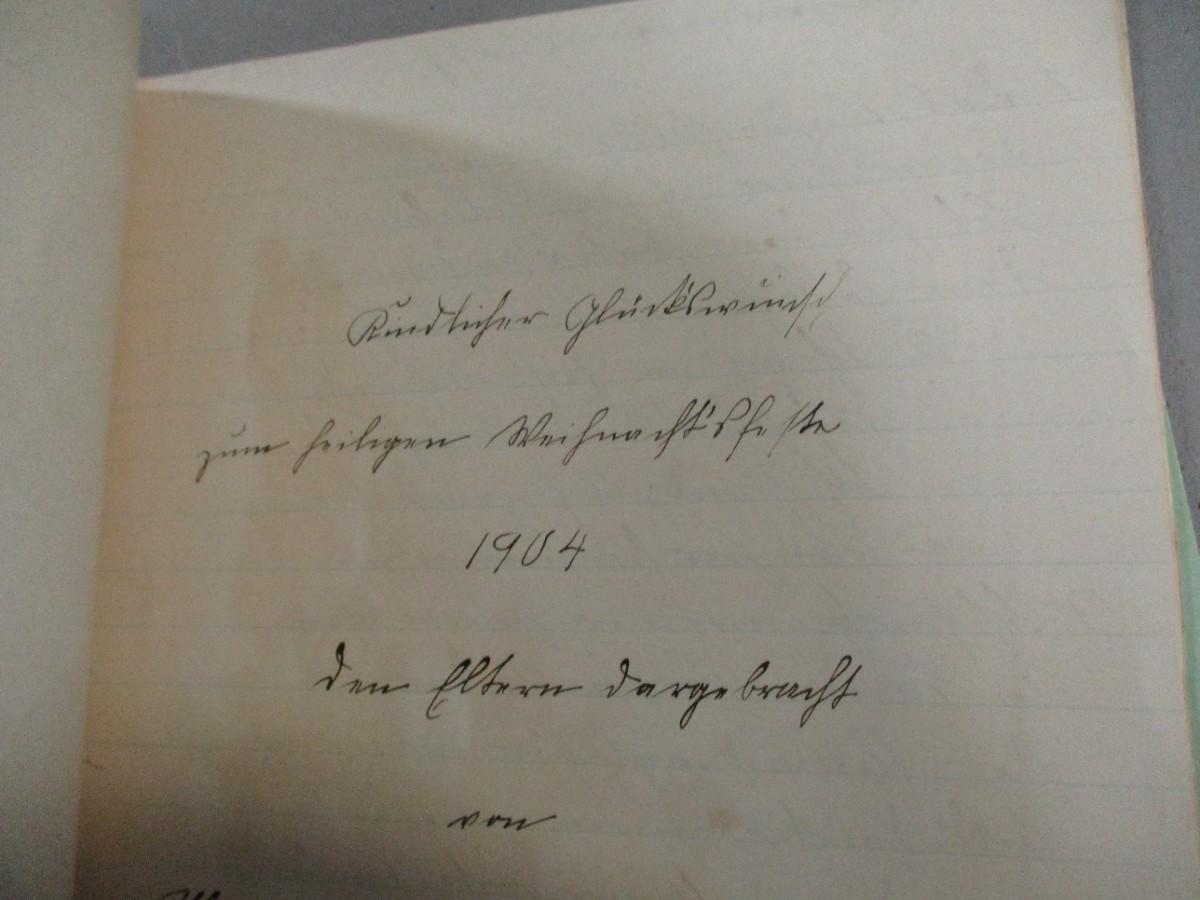 Kindlicher Glückswunsch
zum heiligen Weihnachtsfeste
1904
den Eltern dargebracht
von